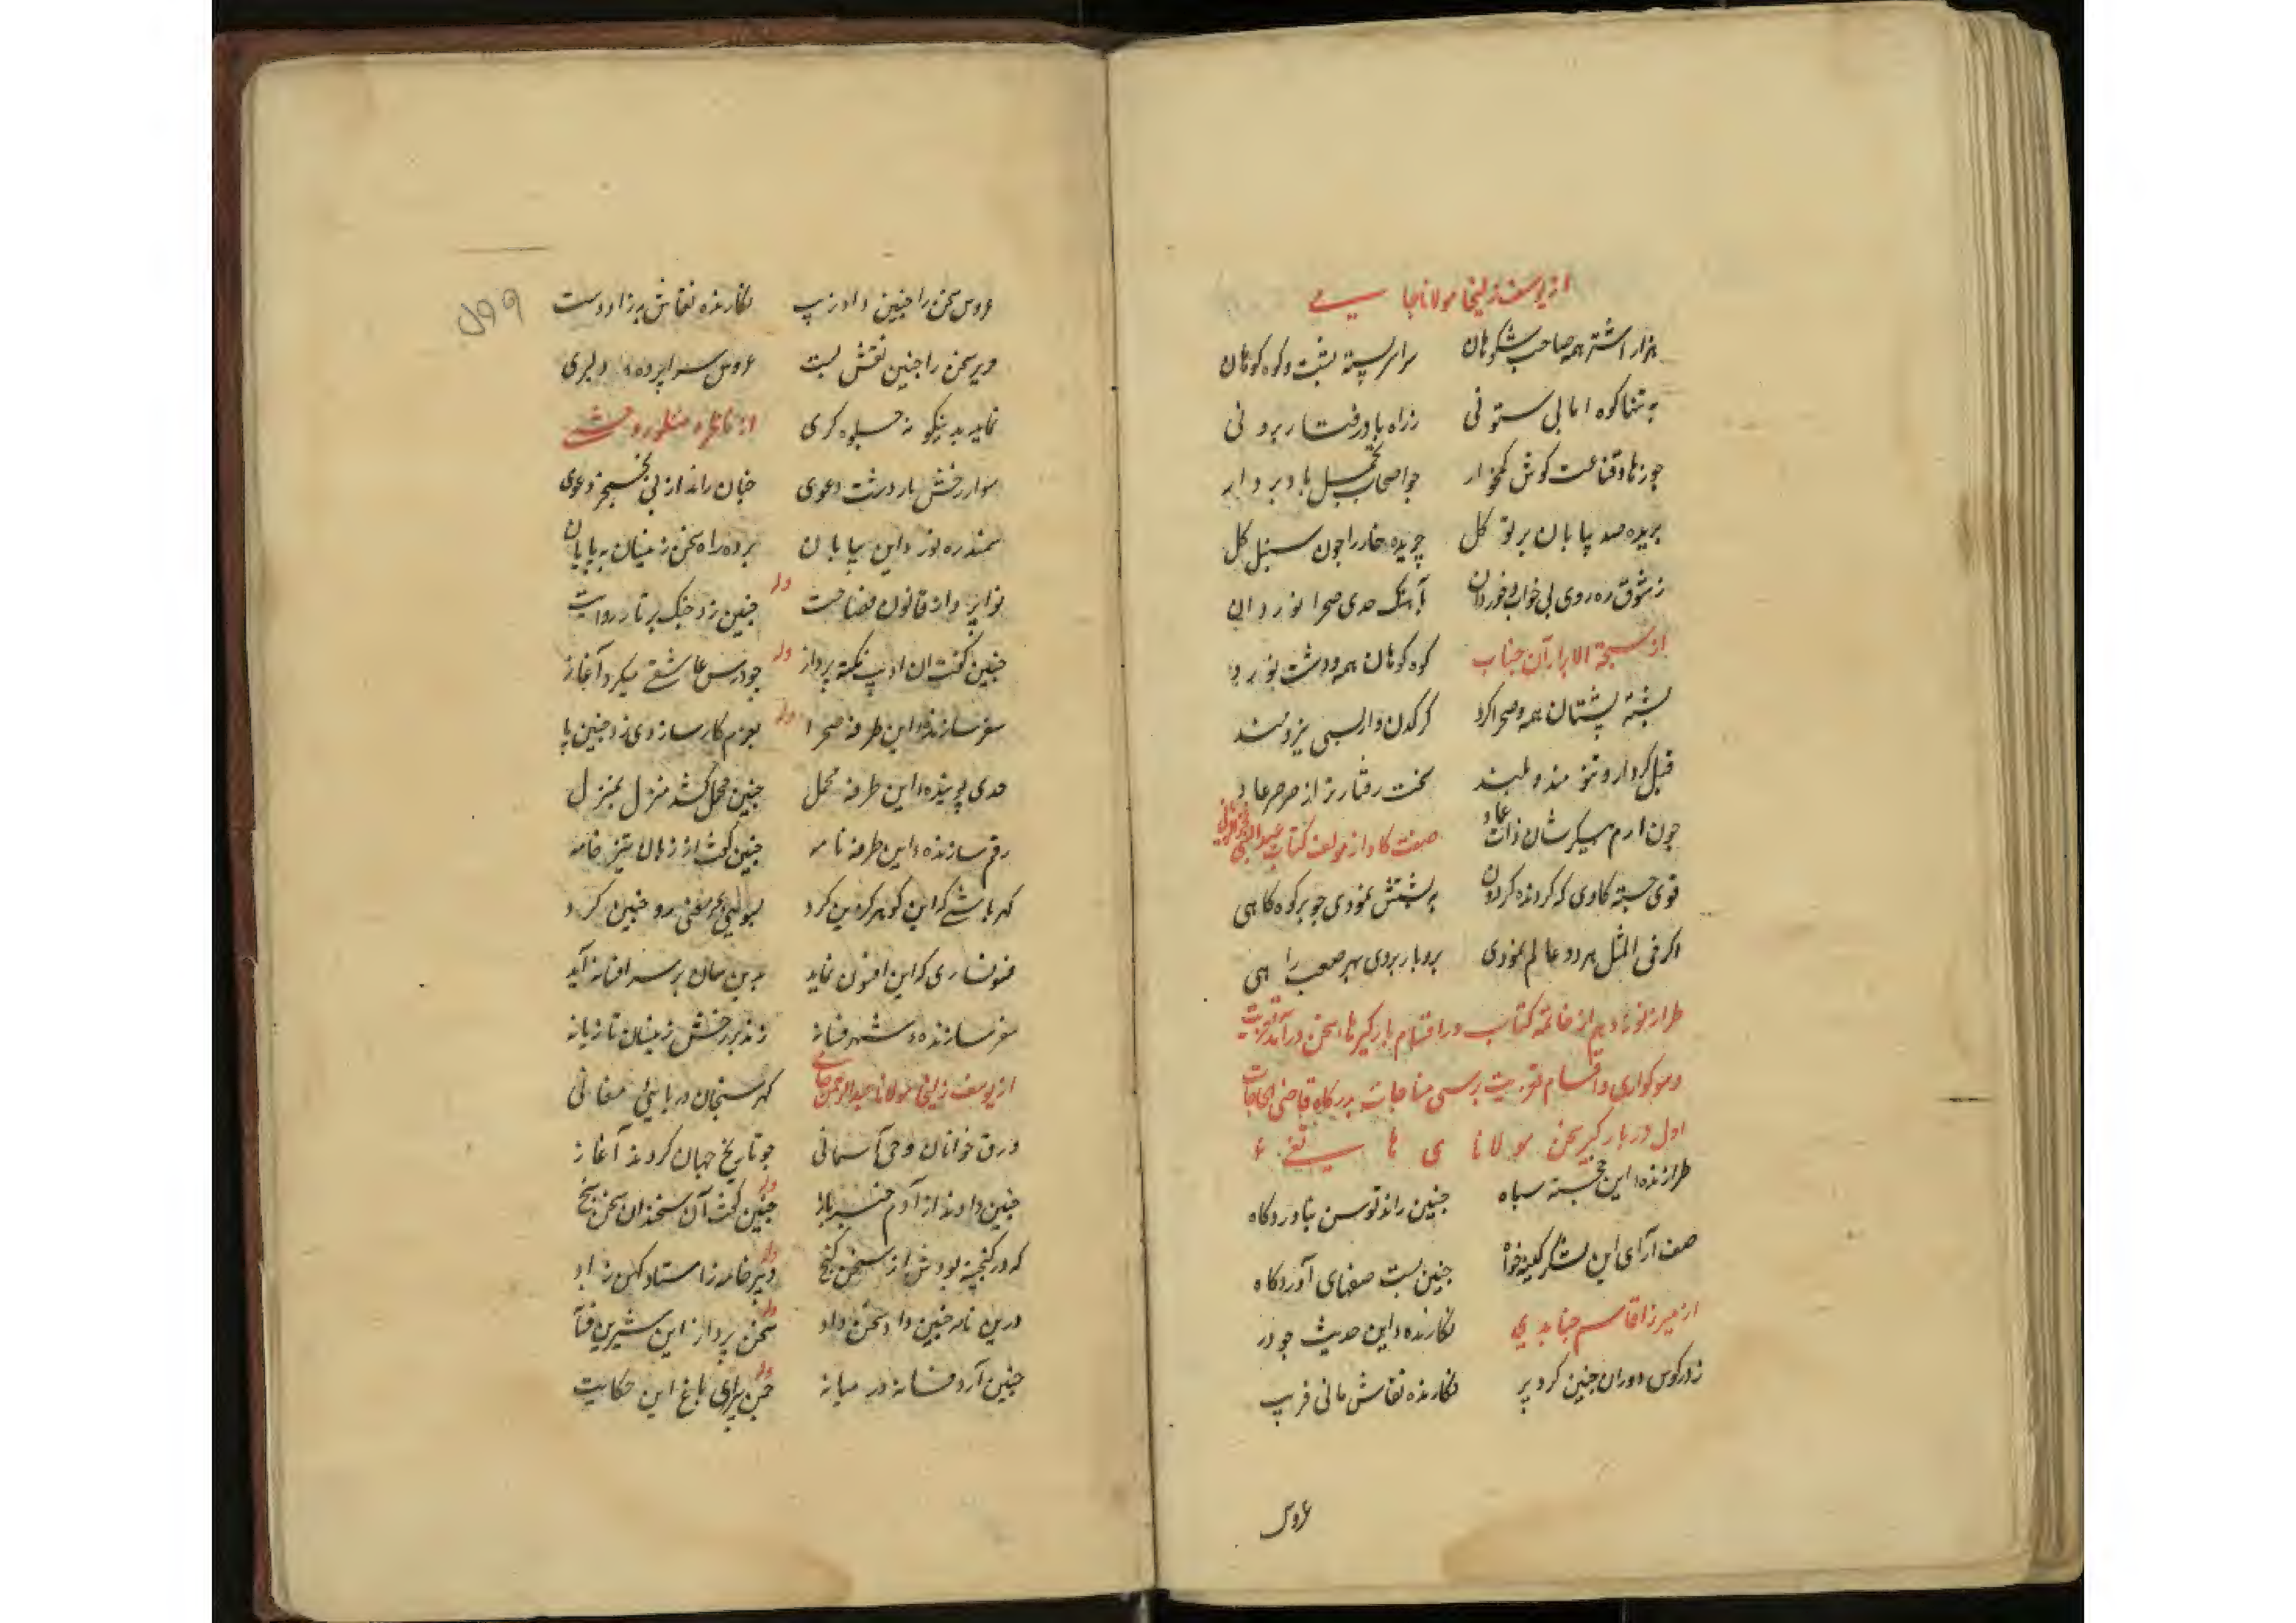 از یوسف زلیخا مولانا جامی
هزار اشتر همه صاحب شکوهان سراسر پسته پشت و کوه کوهان
به تنها کوه اما بی ستونی ز راه باد رفتار برونی
چو زهاد قناعت کوش کمخوار چو اصحاب تحمل بادبردار
بریده صد بیابان بر توکل چریده خار را چون سنبل گل
ز شوق ره روی بی خواب و خوردان باهنگ حدی صحرا نوردان
از سبحة الابرار آن جناب کوه کوهان همه و دشت نورد
پشته پشتان همه و صحرا کرد کرکدن وار بسی
فیل کردار و تنومند و بلند سخت رفتارتر از صرصر عاد
چون ارم پیکرشان ذات عماد صفت کاو از مولف کتاب عبدالنبی فخرالزمانی
قوی جسته کاوی که کردنده کردون به پشتش نمودی چو بر کوه کاهی
اکر فی المثل هر دو عالم نمودی برو بار بردی بهر صعب راهی
طراز نوزدهم از خاتمه کتاب در اقسام بارکیرهای سخن در آمد تعزیت
و سوکواری و اقسام تعزیت پرسی مناجات بدرکاه قاضی الحاجات
اول در بارکیر سخن مولانای هاتفی ع
طرازنده این خجسته سپاه چنین راند توسن بناوردکاه
صف آرای این لشکر کینه خواه چنین بست صفهای آوردکاه
از میرزا قاسم جنابدی نکارنده این حدیث چو در
ز در کوس دوران چنین کرد پر نکارنده نقاش مانی فریب
عروس
عروس سخن را چنین داد زیب نکارنده نقاش بهزاد دست
در سخن را چنین نقش بست عروس سراپرده دلبری
نماید بدینکونه جلوه کری از ناظر و منظور وحشی
سوار رخش بار دشت دعوی چنان راند از پی تسخیر دعوی
سمند ره نورد این بیابان برد راه سخن زینسان به پایان
نوا پرداز قانون فصاحت وله چنین زد چنک بر تار روایت
چنین کفت ان ادیب نکته پرداز وله چو درس عاشقی میکرد آغاز
سفر سازنده این طرفه صحرا وله بعزم کارسازی زد چنین پا
حدی کوینده این طرفه محمل چنین محمل کشد منزل بمنزل
رقم سازنده این طرفه نامه چنین کفت از زبان تیز خامه
کهر پاشی که این کوهر کزین کرد بسوی بحر معنی رو چنین کرد
فسونسازی که این افسون نماید بدین سان بر سر افسانه آید
سفر سازنده شهر فسانه زند بر رخش زینسان تازیانه
از یوسف زلیخا مولانا عبدالرحمن جامی کهر سنجان دریای معانی
ورق خوانان وحی آسمانی چو تاریخ جهان کردند آغاز
چنین دادند از آدم خبر باز وله چنین کفت آن سخندان سخن سنج
که در کنجینه بودش از سخن کنج وله دبیر خامه ز استاد کهن زاد
درین نامه چنین داد سخن داد وله سخن پرداز این شیرین فسانه
چنین آرد فسانه در میانه وله چمن پیرای باغ این حکایت